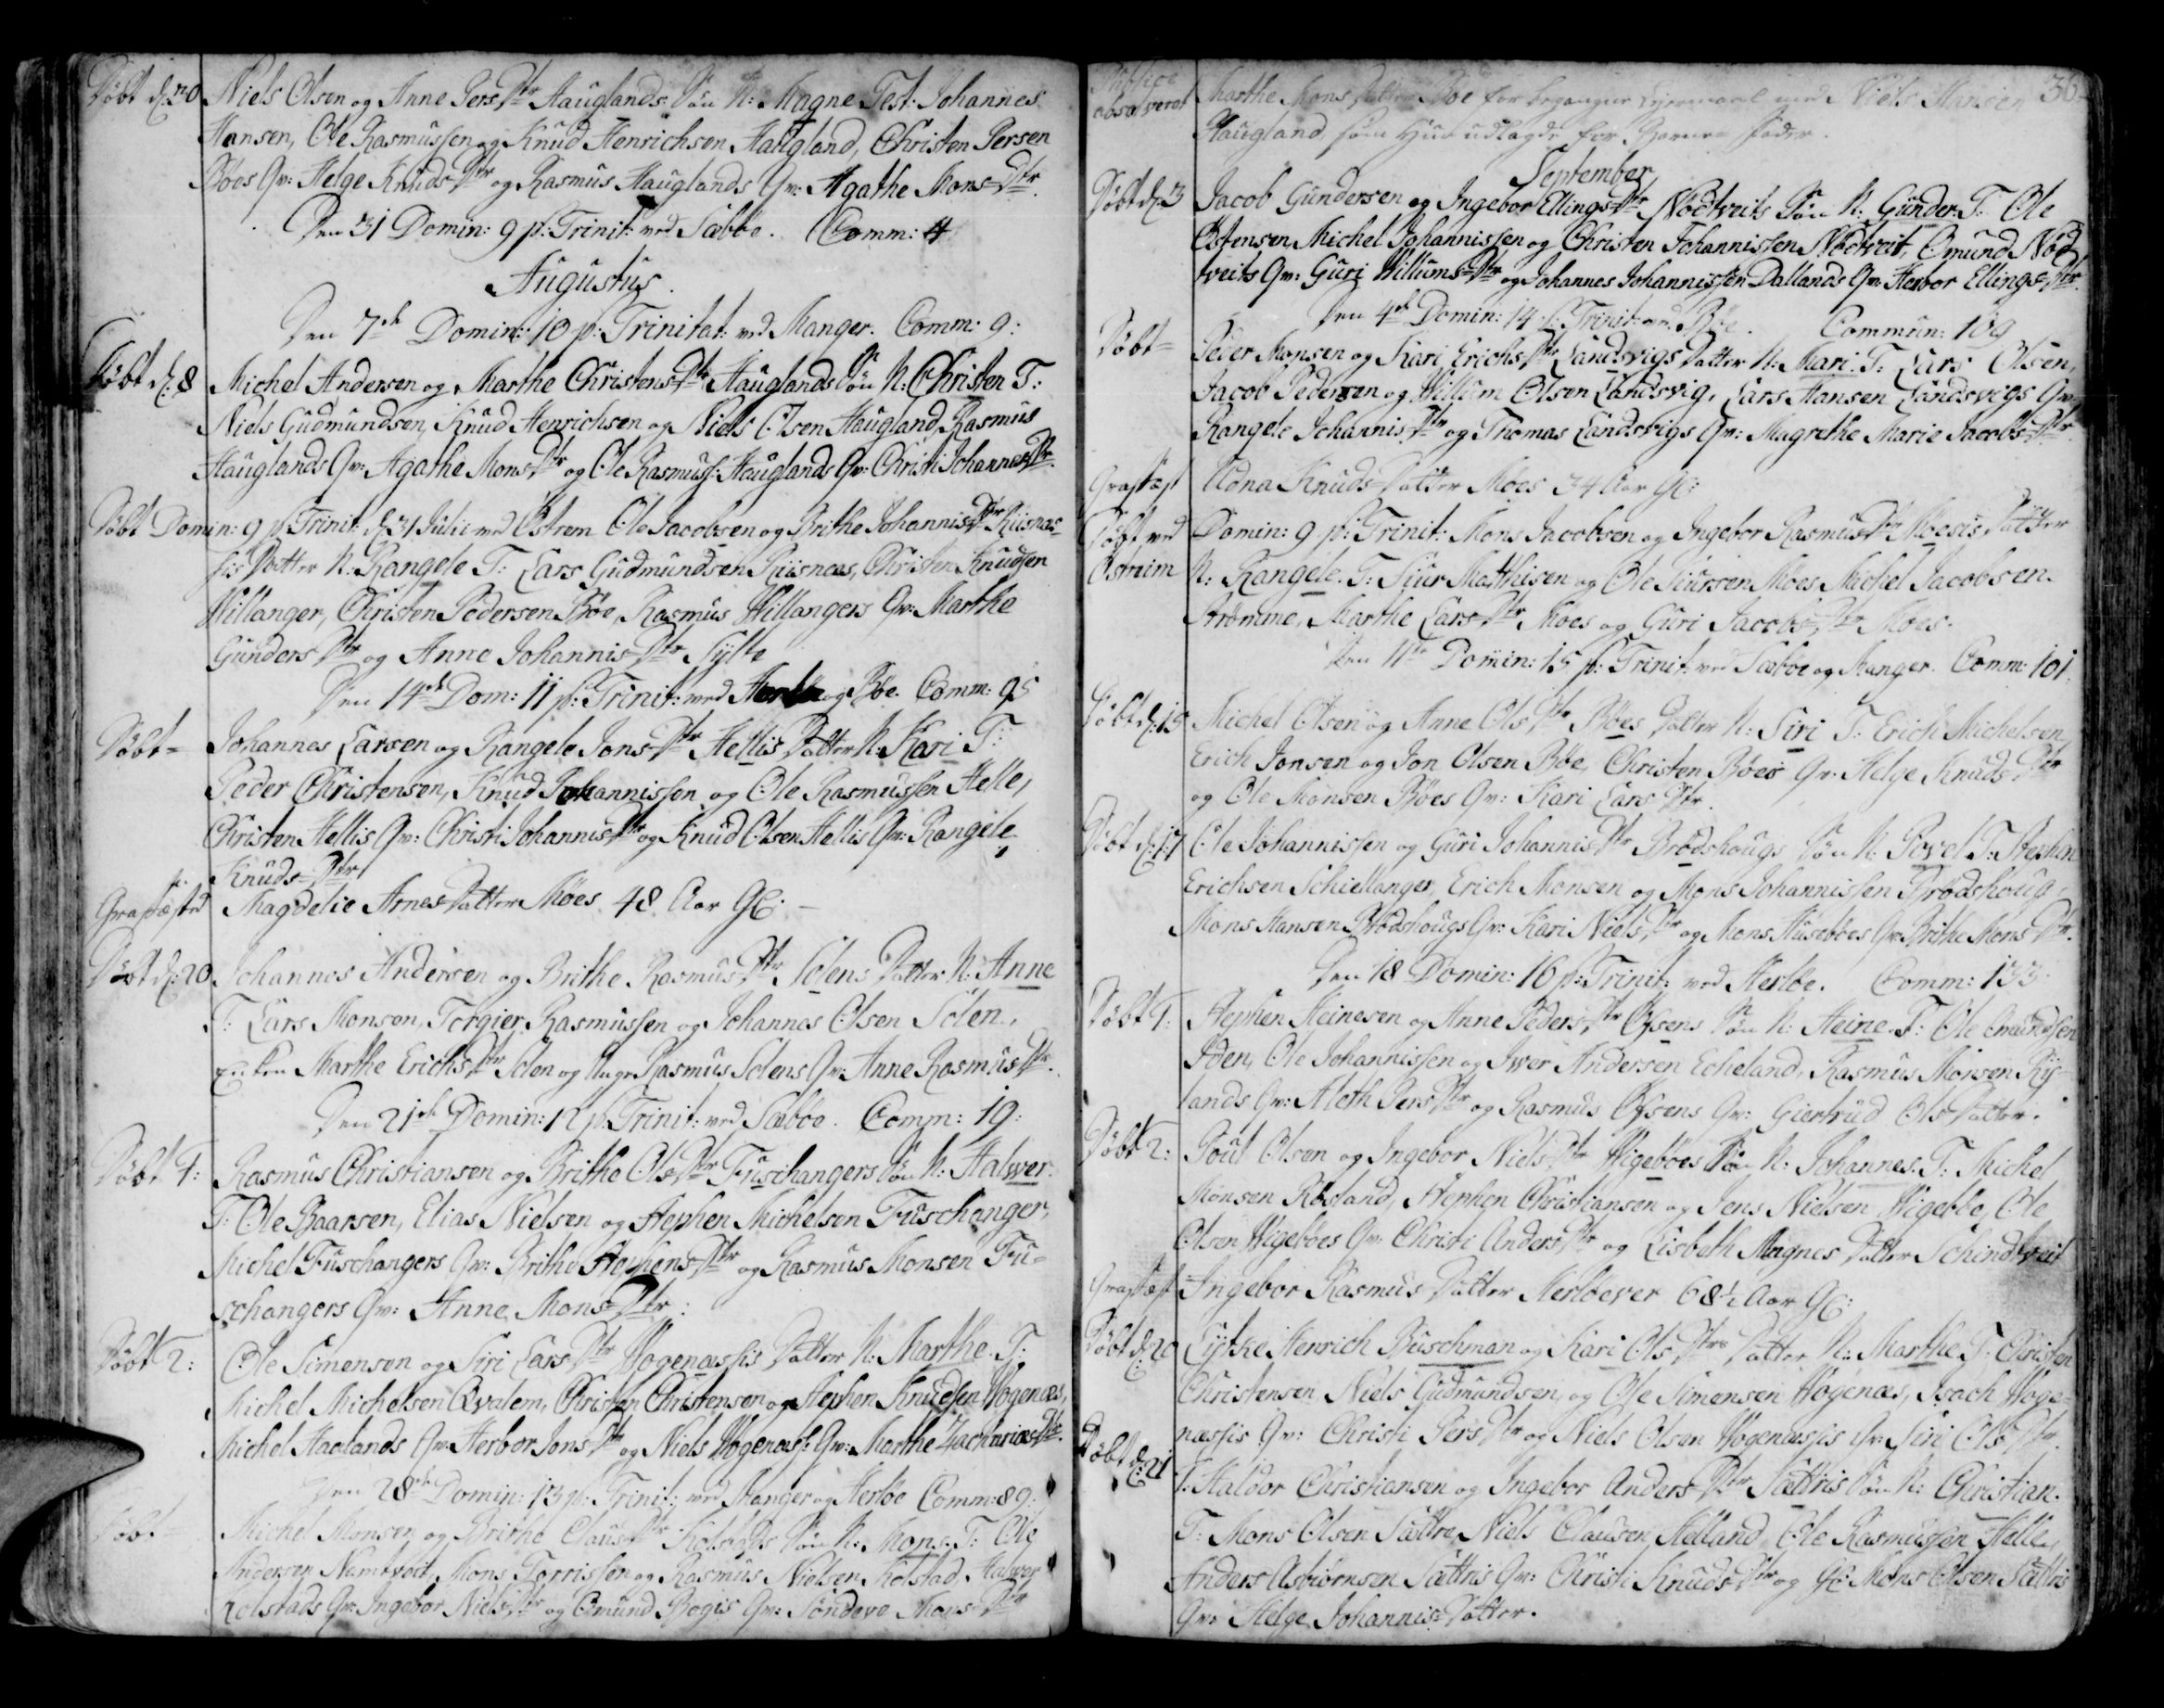 Döbt d: 20 Niels Olsen og Anne Pers Dtr Hauglands Sön N: Magne Test: Johannes
Hansen, Ole Rasmussen og Knud Henrichsen Haugland, Christen Persen
Böes Qv: Helge Knuds Dtr og Rasmus Hauglands Qv: Agathe Mons Dtr.
Den 31 Domin: 9 p: Trinit: ved Sæbbe. Comm: 4
Augustus.
Den 7de Domin: 10 p: Trinitat: ved Manger. Comm: 9:
Döbt d: 8 Michel Andersen og Marthe Christens Dtr Hauglands Sön N: Christen T:
Niels Gudmundsen, Knud Henrichsen og Niels Olsen Haugland, Rasmus
Hauglands Qv: Agathe Mons Dtr og Ole Rasmuss: Hauglands Qv: Christi Johannes Dtr.
Döbt Domin: 9 p: Trinit: d: 31 Julii ved Östrem Ole Jacobsen og Brithe Johannis Dtr Riisnæs-
sis Datter N: Rangele T: Lars Gudmundsen Riisnæs, Christen Knudsen
Willanger, Christen Pedersen Böe, Rasmus Willangers Qv: Marthe
Gunders Dtr og Anne Johannis Dtr Sylte
Den 14de Dom: 11 p: Trinit: ved Herlöe og Böe. Comm: 95
Döbt= Johannes Larsen og Rangele Jons Dtr Hellis Datter N: Kari T:
Peder Christensen, Knud Johannissen og Ole Rasmussen Helle,
Christen Hellis Qv: Christi Johannis Dtr og Knud Olsen Hellis Qv: Rangele
Knuds Dtr
Grafæsted Magdelie Arnes Datter Möes 48 Aar Gl:
Döbt d: 20 Johannes Andersen og Brithe Rasmus Dtr Solens Datter N: Anne
T: Lars Monsen, Torgier Rasmussen og Johannes Olsen Solen,
Marthe Erichs Dtr Solen og Rasmus Solens Qv: Anne Rasmus Dtr.
Den 21de Domin: 12 p: Trinit: ved Sæböe. Comm: 19:
Döbt 1: Rasmus Christiansen og Brithe Ols Dtr Fuschangers Sön N: Halwer.
T: Ole Baarsen, Elias Nielsen og Stephen Michelsen Fuschanger,
Michel Fuschangers Qv: Brithe Stephens Dtr og Rasmus Monsen Fu=
schangers Qv: Anne Mons Dtr:
Döbt 2: Ole Simensen og Siri Lars Dtr Wogenæssis Datter N: Marthe. T:
Michel Michelsen Qvalem, Christen Christensen og Stephen Knudsen Wogenæs,
Michel Haalands Qv: Herbor Jons Dtr og Niels Wogenæss: Qv: Marthe Zachariæ Dtr.
Den 28de Domin: 13 p: Trinit: ved Manger og Herlöe Comm: 89:
Döbt= Michel Monsen og Brithe Claus Dtr Kolstads Sön N: Mons. T: Ole
Andersen Namtvet, Mons Torrissen og Rasmus Nielsen Kolstad, Halwer
Kolstads Qv: Ingebor Niels Dtr og Omund Bogis Qv: Söndeve Mons Dtr
36
absolveret Marthe Mons Datter Böe for begangen Leyermaal med Niels Hansen
Haugland som Hun udlagde for Barne-Fader.
September
Döbt d: 3 Jacob Gundersen og Ingebor Ellings Dtr Nödtveits Sön N: Gunder: T: Ole
Östensen, Michel Johannissen og Christen Johannissen Nödtveit, Omund Nöd
tveits Qv: Guri Willums Dtr og Johannes Johannissen Dallands Qv: Herbor Ellings Dtr.
Den 4de Domin: 14 p: Trinit: ved Böe. Commun: 109
Döbt= Peder Monsen og Kari Erichs Dtr Landsvigs Datter N: Mari. T: Lars Olsen,
Jacob Pedersen og Willum Olsen Landsvig, Lars Hansen Landsvigs Qv:
Rangele Johannis Dtr og Thomas Landsvigs Qv: Magrethe Marie Jacobs Dtr
Grafæst Udna Knuds Datter Möes 34 Aar Gl:
Döbt ved Östreim Domin: 9 p: Trinit: Mons Jacobsen og Ingebor Rasmus Dtr Moesis Datter
N: Rangele. T: Siur Matthisen og Ole Siursen Möes, Michel Jacobsen
Strømme, Marthe Lars Dtr Moes og Guri Jacobs Dtr Moes.
Den 11te Domin: 15 p: Trinit: ved Sæböe og Manger. Comm: 101.
Döbt d: 15 Michel Olsen og Anne Ols Dtr Böes Datter N: Siri T: Erich Michelsen,
Erich Jonsen og Jon Olsen Böe, Christen Böes Qv: Helge Knuds Dtr
og Ole Monsen Böes Qv: Kari Lars Dtr.
Döbt d: 17 Ole Johannissen og Guri Johannis Dtr Brodshougs Sön N: Povel T: Stephen
Erichsen Schiellanger, Erich Monsen og Mons Johannissen Brodshoug,
Mons Hansen Brodshougs Qv: Kari Niels Dtr og Mons Huseböes Qv: Brithe Mons Dtr.
Den 18 Domin: 16 p: Trinit: ved Herlöe. Comm: 133
Döbt 1: Stephen Heinesen og Anne Peders Dtr Öysens Sön N: Heine. T: Ole Omundsen
Iden, Ole Johannissen og Iver Andersen Echeland, Rasmus Monsen Ris-
lands Qv: Aleth Pers Dtr og Rasmus Öysens Qv: Giertrud Ols Datter.
Döbt 2: Poul Olsen og Ingebor Niels Dtr Wigeböes Sön N: Johannes. T: Michel
Monsen Rosland, Stephen Christiansen og Jens Nielsen Wigeböe, Ole
Olsen Wigeböes Qv: Christi Anders Dtr og Lisbeth Magnes Datter Schindtveit
Grafæst Ingebor Rasmus Datter Herlöever 68½ Aar Gl:
Döbt d: 20 Lytke Henrich Buschman og Kari Ols Dtrs Datter N: Marthe T: Christen
Christensen, Niels Gudmundsen, og Ole Simensen Wogenæs, Isach Woge-
næssis Qv: Christi Pers Dtr og Niels Olsen Wogenæssis Qv: Siri Ols Dtr
Döbt d: 21 Haldor Christiansen og Ingebor Anders Dtr Sættris Sön N: Christian.
T: Mons Olsen Sættre, Niels Clausen Helland, Ole Rasmussen Helle,
Anders Asbiörnsen Sættris Qv: Christi Knuds Dtr og Gl: Mons Olsen Sættris
Qv: Helge Johannis Datter.